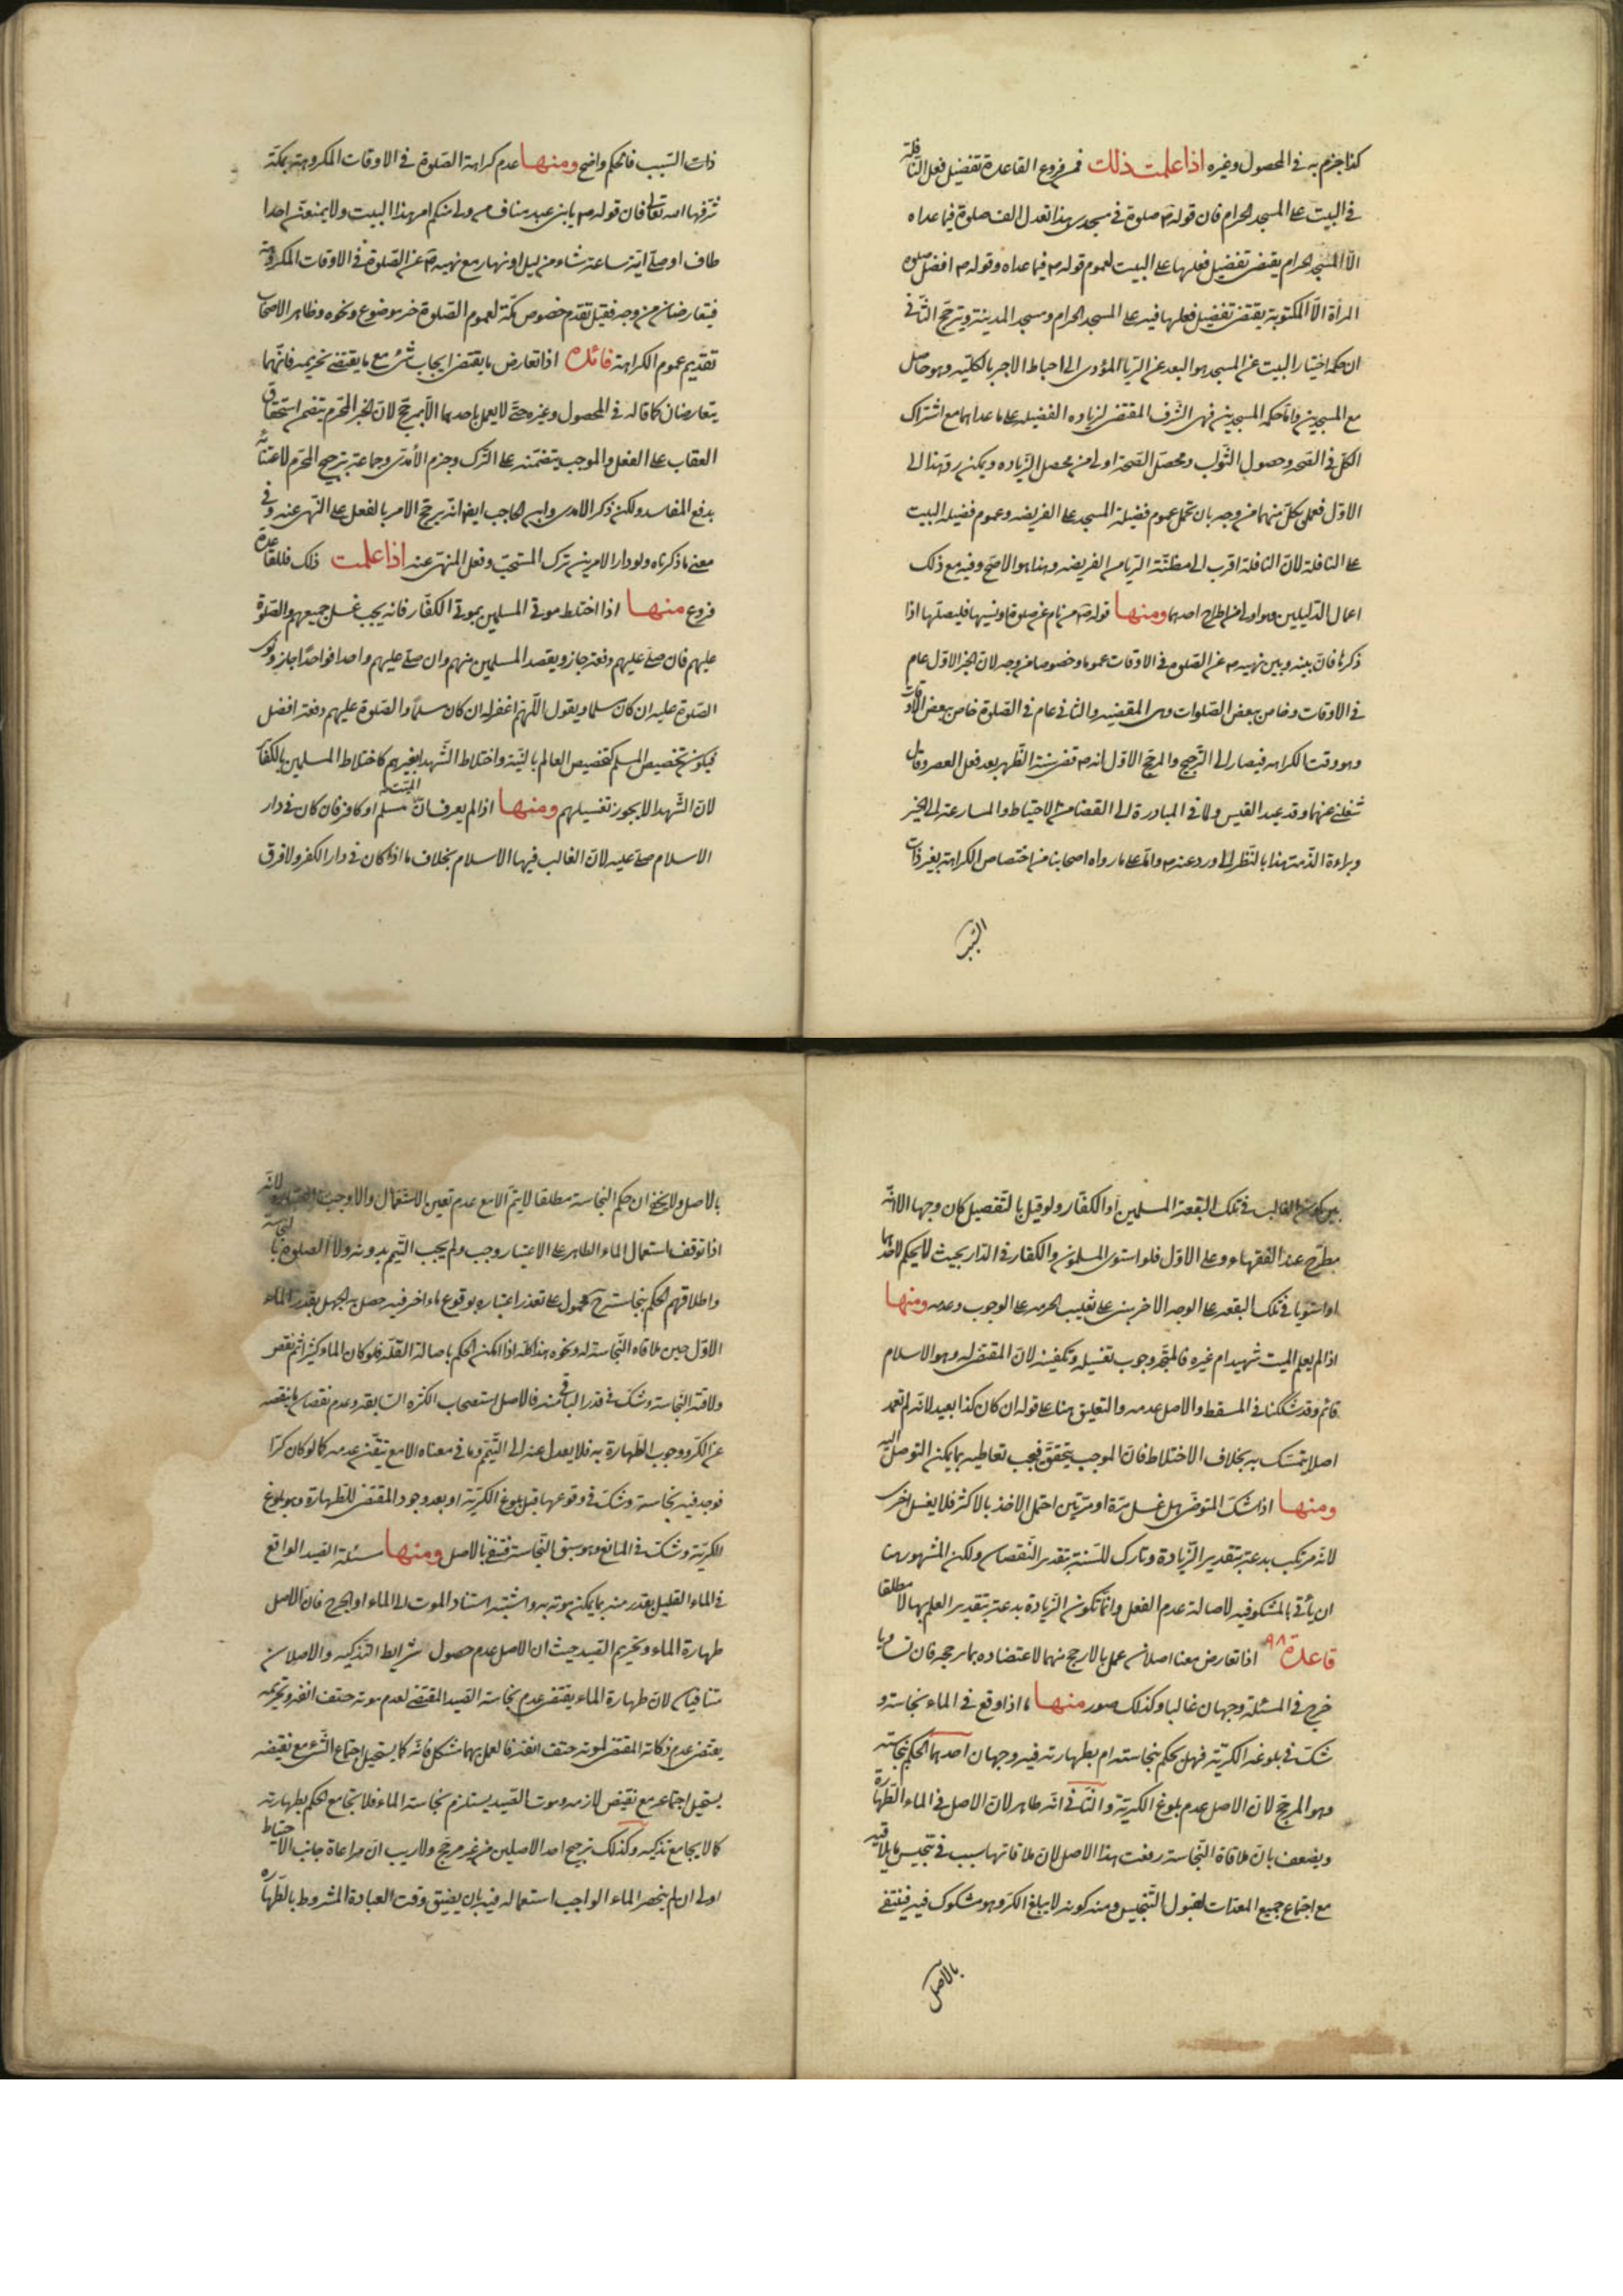 كذا جزم به في المحصول وغيره اذا علمت ذلك فمن فروع القاعدة تفضيل فعل النافلة
في البيت على المسجد الحرام فان قوله ص صلوة في مسجدي هذا تعدل الف صلوة فيما عداه
الا المسجد الحرام يقتضى تفضيل فعلها على البيت لعموم قوله ص فيما عداه وقوله ص افضل صلوة
المرأة الا المكتوبة يقتضى تفضيل فعلها فيه على المسجد الحرام ومسجد المدينة ويترجح الثاني
ان حكمة اختيار البيت عن المسجد هو البعد عن الريا المؤدى الى احباط الاجر بالكلية وهو حاصل
مع المسجدين واما حكمة المسجدين فهى الشرف المقتضى لزيادة الفضيلة على ما عداهما مع اشتراك
الكل في الصحة وحصول الثواب ومحصل الصحة اولى من محصل الزيادة ويمكن رد هذا الى
الاول فعمل بكل منهما من وجه بان تحمل عموم فضيلة المسجد على الفريضه وعموم فضيلة البيت
على النافلة لان النافلة اقرب الى مظنة الريا من الفريضه وهذا هو الاصح وفيه مع ذلك
اعمال الدليلين وهو اولى من اطراح احدهما ومنها قوله ص من نام عن صلوة او نسيها فليصلها اذا
ذكرها فان بينه وبين نهيه ص عن الصلوة في الاوقات عموما وخصوصا من وجه لان الخبر الاول عام
في الاوقات وخاص ببعض الصلوات وهى المقضيه والثاني عام في الصلوة خاص ببعض الاوقات
وهو وقت الكراهه فيصار الى الترجيح والمرجح الاول انه ص قضى سنة الظهر بعد فعل العصر وقال
شغلني عنها وفد عبد القيس ولما في المبادرة الى القضا من الاحتياط والمسارعة الى الخير
وبراءة الذمة هذا بالنظر الى ورد عنه ص واما على ما رواه اصحابنا من اختصاص الكراهة بغير ذات
السبب
ذات السبب فالحكم واضح ومنها عدم كراهة الصلوة في الاوقات المكروهة بمكة
شرفها الله تعالى فان قوله ص يا بني عبد مناف من ولى منكم امر هذا البيت ولا يمنعن احدا
طاف او صلى اية ساعة شاء من ليل او نهار مع نهيه ص عن الصلوة في الاوقات المكروهة
فيتعارضان من وجه فقيل تقدم خصوص مكة لعموم الصلوة خير موضوع ونحوه وظاهر الاصحاب
تقديم عموم الكراهة فائدة اذا تعارض ما يقتضى ايجاب شئ مع ما يقتضى تحريمه فانهما
يتعارضان كما قاله في المحصول وغيره حتى لا يعمل باحدهما الا بمرجح لان الخبر المحرم يتضمن استحقاق
العقاب على الفعل والموجب يتضمنه على الترك وجزم الآمدى وجماعة بترجيح المحرم لاعتنائه
بدفع المفاسد ولكن ذكر الامدى وابن الحاجب ايضا انه يرجح الامر بالفعل على النهى عنه وفي
معنى ما ذكرناه ولو دار الامر بين ترك المستحب وفعل المنهى عنه اذا علمت ذلك فللقاعدة
فروع منها اذا اختلط موتى المسلمين بموتى الكفار فانه يجب غسل جميعهم والصلوة
عليهم فان صلى عليهم دفعة جاز ويقصد المسلمين منهم وان صلى عليهم واحدا فواحدا جاز ونوى
الصلوة عليه ان كان مسلما ويقول اللهم اغفر له ان كان مسلما والصلوة عليهم دفعة افضل
فيكون تخصيص المسلم كتخصيص العالم بالنية واختلاط الشهدا بغيرهم كاختلاط المسلمين بالكفار
لان الشهدا لا يجوز تغسيلهم ومنها اذا لم يعرف ان الميت مسلم او كافر فان كان في دار
الاسلام صلى عليه لان الغالب فيها الاسلام بخلاف ما اذا كان في دار الكفر ولا فرق
بين كون الغالب في تلك البقعة المسلمين او الكفار ولو قيل بالتفصيل كان وجها الا انه
مطرح عند الفقهاء وعلى الاول فلو استوى المسلمون والكفار في الدار بحيث لا يحكم لاحدهما
او استويا في تلك البقعة على الوجه الاخر بنى على تغليب الحرمه على الوجوب وعدمه ومنها
اذا لم يعلم الميت شهيد ام غيره فالمتجه وجوب تغسيله وتكفينه لان المقتضى له وهو الاسلام
قائم وقد شككنا في المسقط والاصل عدمه والتعليق هنا على قوله ان كان كذا بعيد لانه لم تعهد
اصلا يتمسك به بخلاف الاختلاط فان الموجب يتحقق فيجب تعاطيه بما يمكن التوصل اليه
ومنها اذا شك المتوضى هل غسل مرة او مرتين احتمل الاخذ بالاكثر فلا يغسل اخرى
لانه مرتكب بدعة بتقدير الزيادة وتارك للسنة بتقدير النقصان ولكن المشهور هنا
ان ياتي بالمشكوك فيه لاصالة عدم الفعل وانما تكون الزيادة بدعة بتقدير العلم بها لا مطلقا
قاعدة ٩٨ اذا تعارض معنا اصلان عمل بالارجح منهما لاعتضاده بما يرجحه فان تساويا
خرج في المسئلة وجهان غالبا وكذلك صور منها ما اذا وقع في الماء نجاسة و
شك في بلوغه الكرية فهل يحكم بنجاسته ام بطهارته فيه وجهان احدهما الحكم بنجاسته
وهو المرجح لان الاصل عدم بلوغ الكرية والثاني انه طاهر لان الاصل في الماء الطهارة
ويضعف بان ملاقاة النجاسة رفعت هذا الاصل لان ملاقاتها سبب في تنجيس ما يلاقيه
مع اجتماع جميع المعدات لقبول التنجيس ومنه كونه لا يبلغ الكر وهو مشكوك فيه فينتفى
بالاصل
بالاصل ولا يخفى ان حكم النجاسة مطلقا لا يتم الا مع عدم تعين الاستعمال والا وجب لانه
اذا توقف استعمال الماء الطاهر على الاعتبار وجب ولم يجب التيمم بدونه ولا الصلوة بالنجاسة
واطلاقهم الحكم بنجاسته ح محمول على تعذر اعتباره بوقوع ماء اخر فيه حصل به الجهل بقدر الماء
الاول حين ملاقاه النجاسة له ونحوه هذا كله اذا امكن الحكم باصالة القلة فلو كان الماء كثيرا ثم نقص
ولاقته النجاسة وشك في قدر الباقي منه فالاصل استصحاب الكثرة السابقة وعدم نقصان ما ينقصه
عن الكر ووجوب الطهارة به فلا يعدل عنه الى التيمم وما في معناه الا مع تيقن عدمه كما لو كان كرا
فوجد فيه نجاسة وشك في وقوعها قبل بلوغ الكرية او بعد وجود المقتضى للطهارة وهو بلوغ
الكرية وشك في المانع وهو سبق النجاسة فينتفى بالاصل ومنها مسئلة الصيد الواقع
في الماء القليل بعذر منه بما يمكن موته به واشتبه استناد الموت الى الماء او الجرح فان الاصل
طهارة الماء وتحريم الصيد حيث ان الاصل عدم حصول شرايط التذكيه والاصلان
متنافيان لان طهارة الماء يقتضى عدم نجاسة الصيد المقتضى لعدم موته حتف انفه وتحريمه
يقتضى عدم ذكاته المقتضى لموته حتف انفه فالعمل بهما مشكل فانه كما يستحيل اجتماع الشئ مع نقيضه
يستحيل اجتماعه مع نقيض لازمه وموت الصيد يستلزم نجاسة الماء فلا يجامع الحكم بطهارته
كما لا يجامع تذكيه وكذلك ترجيح احد الاصلين من غير مرجح ولا ريب ان مراعاة جانب الاحتياط
اولى ان لم ينحصر الماء الواجب استعماله فيه بان يضيق وقت العبادة المشروط بالطهارة